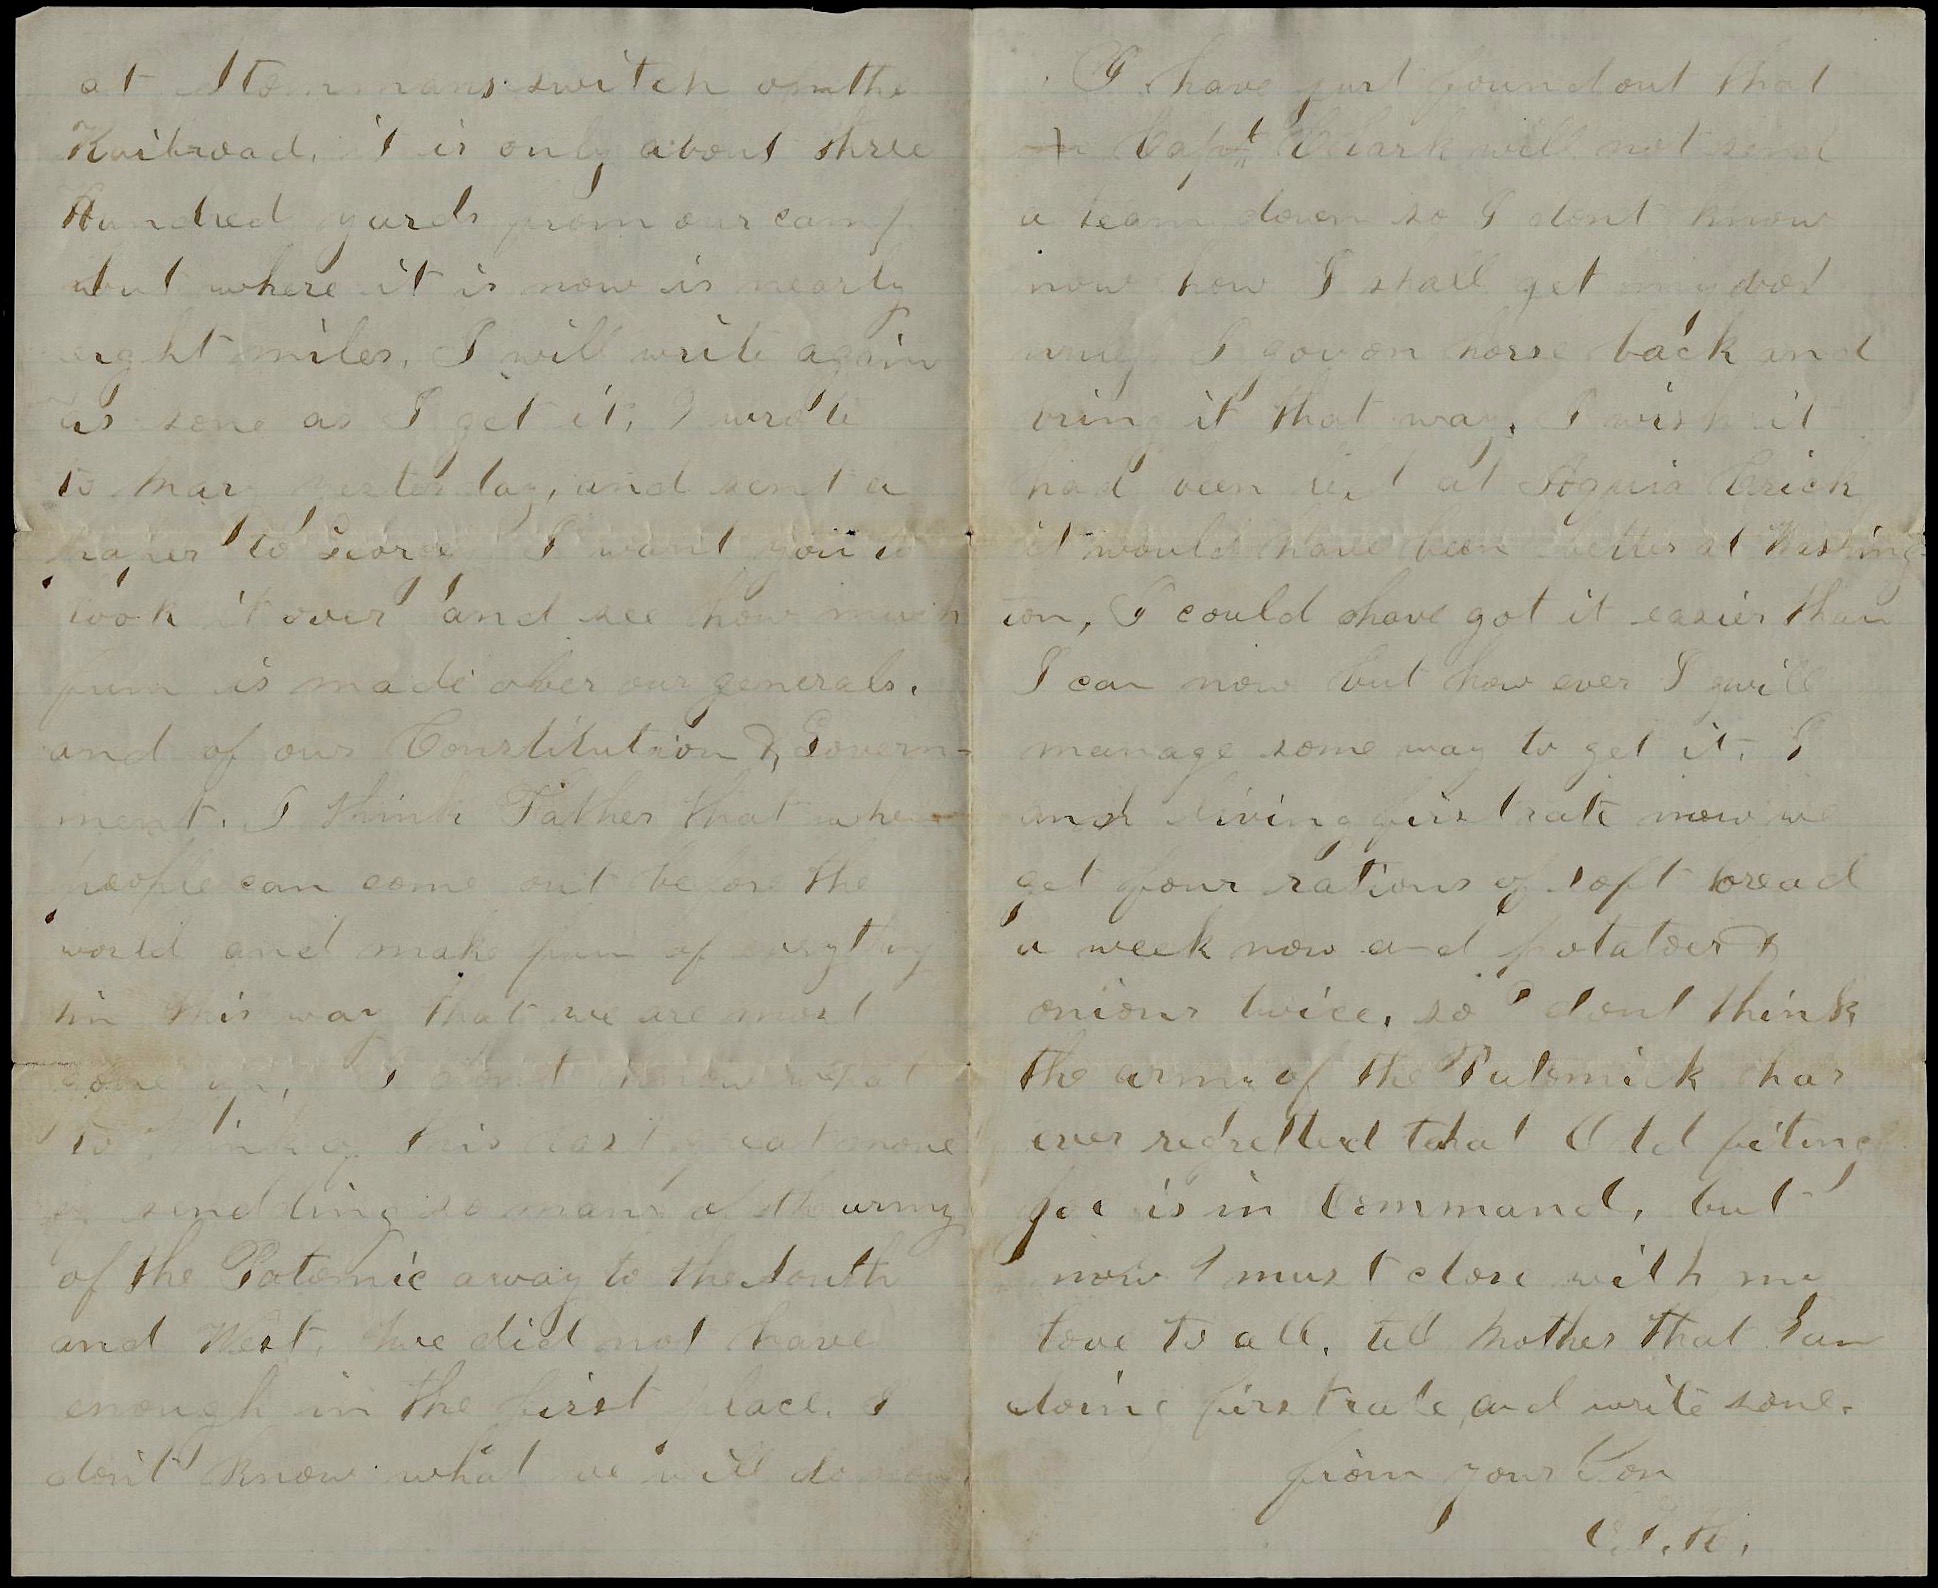 at Stonmans switch on the
Railroad, it is only about three
Hundred yards from our camp
but where it is now is nearly
eight miles, I will write again
as sone as I get it, I wrote
to Mary yesterday, and sent a
paper to George I want you to
look it over and see how much
fun is made over our generals.
and of our Constitution & Govern-
ment. I think Father that when
people can come out before the
world and make fun of everything
in this way that we are most
gone up, I dont know what
to think of this last great move
of sendding so many of the army
of the Potomic away to the South
and West, we did not have
enough in the first place. I
dont know what we will do now,
I have just found out that
Capt Clark will not send
a team down so I dont know
now how I shall get my box
unless I go on horse back and
bring it that way, I wish it
had been left at Acquia Crick
it would have been better at Washing-
ton, I could have got it easier than
I can now but how ever I will
manage some way to get it, I
and living firstrate now we
get four rations of soft bread
a week now and potatoes &
onions twice, so I dont think
the army of the Potomick has
ever regretted that Old fiting
Joe is in Command, but
now I must close with my
love to all, tell Mother that I am
doing firstrate and write sone.
from your Son